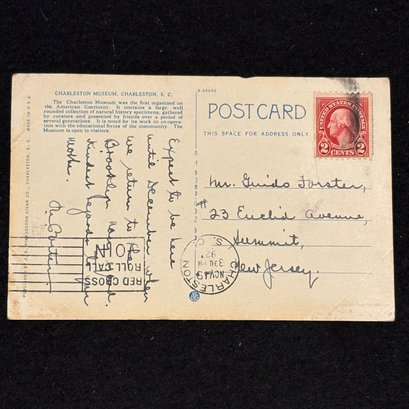 CHARLESTON MUSEUM, CHARLESTON, S. C.
The Charleston Museum was the first organized on
the American Continent. It contains a large, well
rounded collection of natural history specimens, gathered
by curators and presented by friends over a period of
several generations. It is noted for its work in co-oper-
ation with the educational forces of the community. The
Museum is open to visitors.
Expect to be here
until December when
we return to the
Brooklyn home.
Kindest regards to your
M. Porter
POSTCARD
THIS SPACE FOR ADDRESS ONLY
UNITED STATES POSTAGE
2 CENTS 2
Mr. Guido Forster,
#23 Euclid Avenue,
Summit,
New Jersey.
CHARLESTON
S. C.
NOV 19
3 30 PM
RED CROSS
ROLL CALL
JOIN